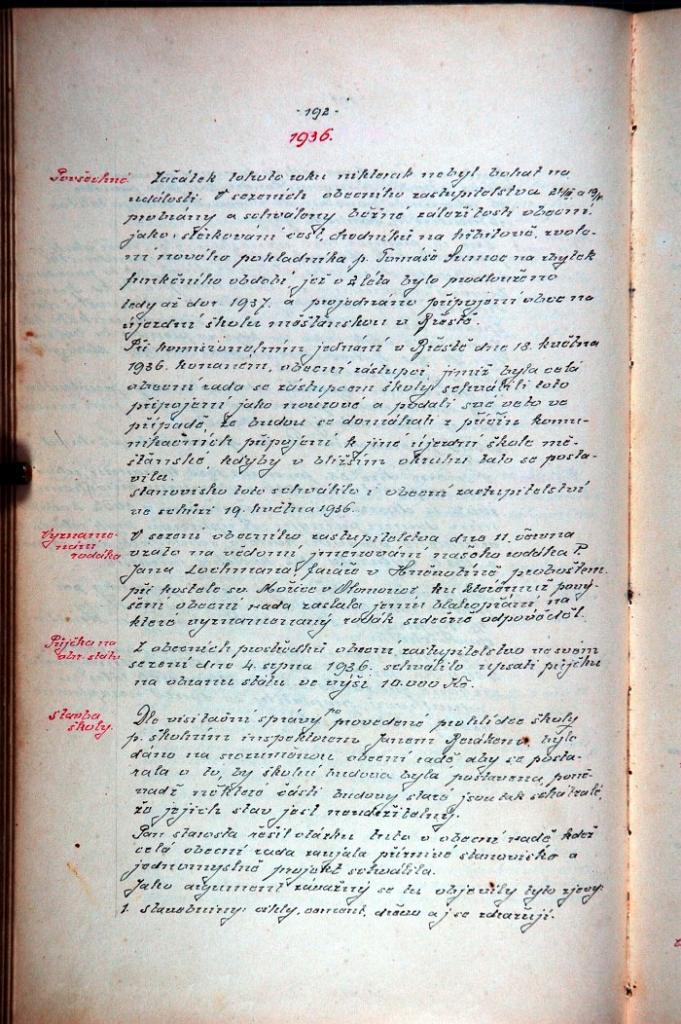 - 192 -
1936.
Povšechné.
Začátek tohoto roku nikterak nebyl bohat na
události. V sezeních obecního zastupitelstva
probrány a schváleny běžné záležitosti obecní,
jako: štěrkování cest, chodníků na hřbitově, zvole-
ní nového pokladníka p. Tomáše na zbytek
funkčního období, jež o 2 léta bylo prodlouženo
tedy až do r. 1937. a projednáno připojení obce na
újezdní školu měšťanskou v Brestě.
Při komisionelním jednání v Brestě dne 18. května
1936. konaném, obecní zástupci, jimiž byla celá
obecní rada se zástupcem školy, schválili toto
připojení jako nouzové a podali své veto ve
případě, že budou se domáhati z příčin komu-
nikačních připojení k jiné újezdní škole mě-
šťanské, kdyby v bližším okruhu tato se posta-
vila.
Stanovisko toto schválilo i obecní zastupitelství
ve schůzi 19. května 1936.
Vyzname-
nání
rodáka
V sezení obecního zastupitelstva dne 11. června
vzato na vědomí jmenování našeho rodáka P.
Jana Lochmana, faráře v Hněvotíně proboštem
při kostele sv. Mořice v Olomouci, ku kterémuž pový-
šení obecní rada zaslala jemu blahopřání, na
které vyznamenaný rodák srdečně odpověděl.
Půjčka na
obr. státu
Z obecních prostředků obecní zastupitelstvo ve svém
sezení dne 4. srpna 1936. schválilo upsati půjčku
na obranu státu ve výši 10.000 Kč.
Stavba
školy.
Dle visitační zprávy po provedené prohlídce školy
p. školním inspektorem Janem bylo
dáno na srozuměnou obecní radě aby se posta-
rala o to, by školní budova byla postavena, poně-
vadž některé části budovy staré jsou tak schátralé,
že jejich stav jest neudržitelný.
Pan starosta řešil otázku tuto v obecní radě kdež
celá obecní rada zaujala příznivé stanovisko a
jednomyslně projekt schválila.
Jako argument závažný se tu objevily tyto zjevy:
1. stavebniny: cihly, cement, dřevo a j. se zdražují.